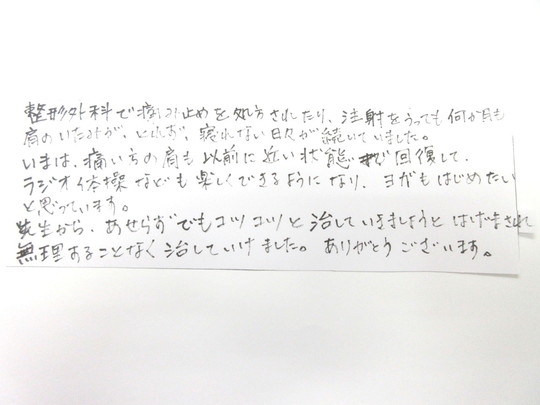 整形外科で痛み止めを処方されたり、注射をうっても何か月も
肩のいたみが、とれず、寝れない日々が続いていました。
いまは、痛い方の肩も以前に近い状態まで回復して、
ラジオ体操なども楽しくできるようになり、ヨガもはじめたい
と思っています。
先生から、あせらずでもコツコツと治していきましょうとはげまされて
無理することなく治していけました。ありがとうございます。